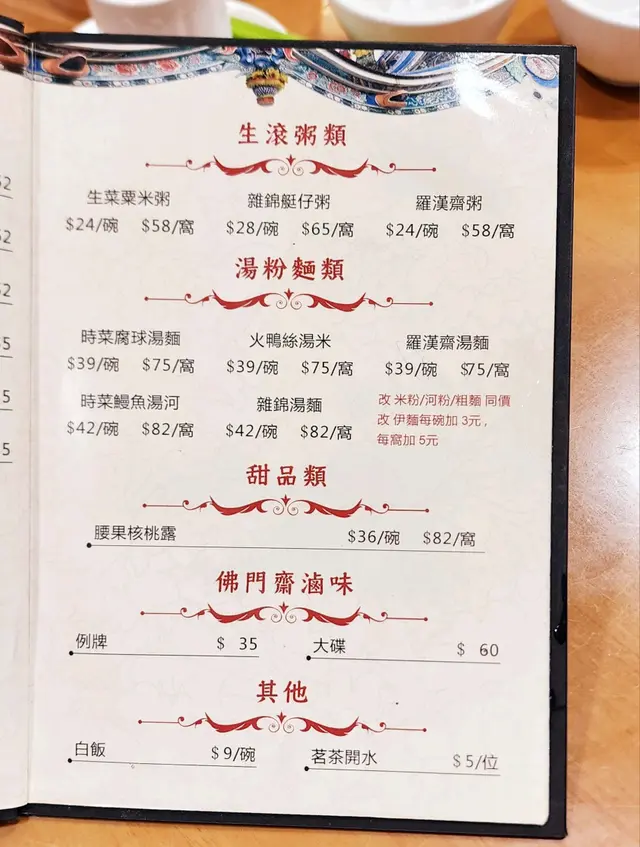 生滾粥類
生菜粟米粥 雜錦艇仔粥 羅漢齋粥
$24/碗 $58/窩 $28/碗 $65/窩 $24/碗 $58/窩
湯粉麵類
時菜腐球湯麵 火鴨絲湯米 羅漢齋湯麵
$39/碗 $75/窩 $39/碗 $75/窩 $39/碗 $75/窩
時菜鰻魚湯河 雜錦湯麵
$42/碗 $82/窩 $42/碗 $82/窩
改 米粉/河粉/粗麵 同價
改 伊麵每碗加 3元,
每窩加 5元
甜品類
腰果核桃露 $36/碗 $82/窩
佛門齋滷味
例牌 $ 35 大碟 $ 60
其他
白飯 $9/碗 茗茶開水 $5/位